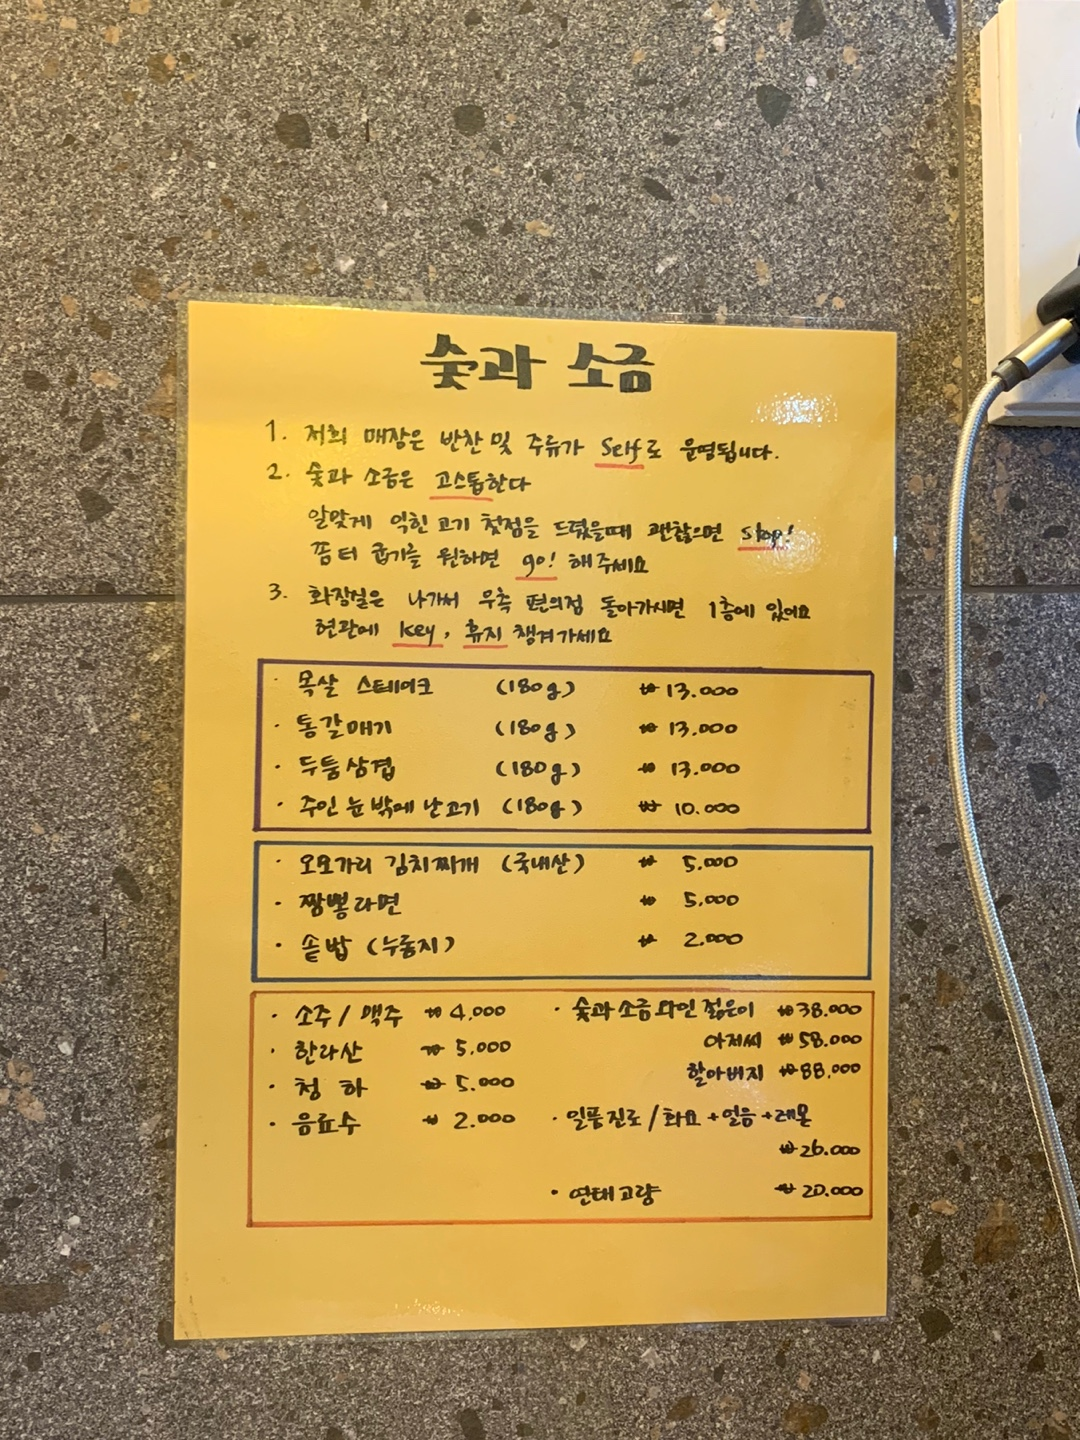 숯과 소금
1. 저희 매장은 반찬 및 주류가 Self로 운영됩니다.
2. 숯과 소금은 고스톱한다
알맞게 익힌 고기 첫점을 드렸을때 괜찮으면 stop!
쫌 터 굽기를 원하면 go! 해주세요
3. 화장실은 나가서 우측 편의점 돌아가시면 1층에 있어요
현관에 key, 휴지 챙겨가세요
· 목살 스테이크 (180g) ₩ 13.000
· 통갈매기 (180g) ₩ 13.000
· 두툼삼겹 (180g) ₩ 13.000
· 주인 눈 밖에 난 고기 (180g) ₩ 10.000
· 오모가리 김치찌개 (국내산) ₩ 5.000
· 짬뽕라면 ₩ 5.000
· 솥밥 (누룽지) ₩ 2.000
· 소주 / 맥주 ₩ 4.000
· 한라산 ₩ 5.000
· 청하 ₩ 5.000
· 음료수 ₩ 2.000
· 숯과 소금 와인 젊은이 ₩ 38.000
아저씨 ₩ 58.000
할아버지 ₩ 88.000
· 일품진로 / 화요 + 얼음 + 레몬
₩ 26.000
· 연태고량 ₩ 20.000